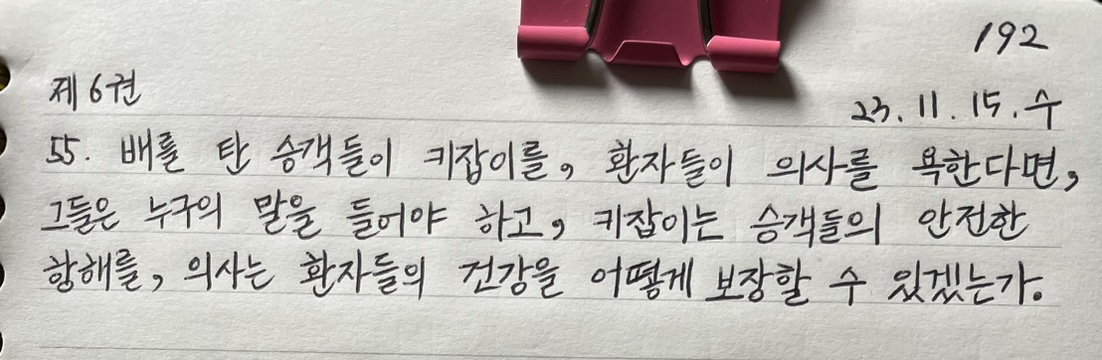 192
제6권
23.11.15.수
55. 배를 탄 승객들이 키잡이를, 환자들이 의사를 욕한다면,
그들은 누구의 말을 들어야 하고, 키잡이는 승객들의 안전한
항해를, 의사는 환자들의 건강을 어떻게 보장할 수 있겠는가.